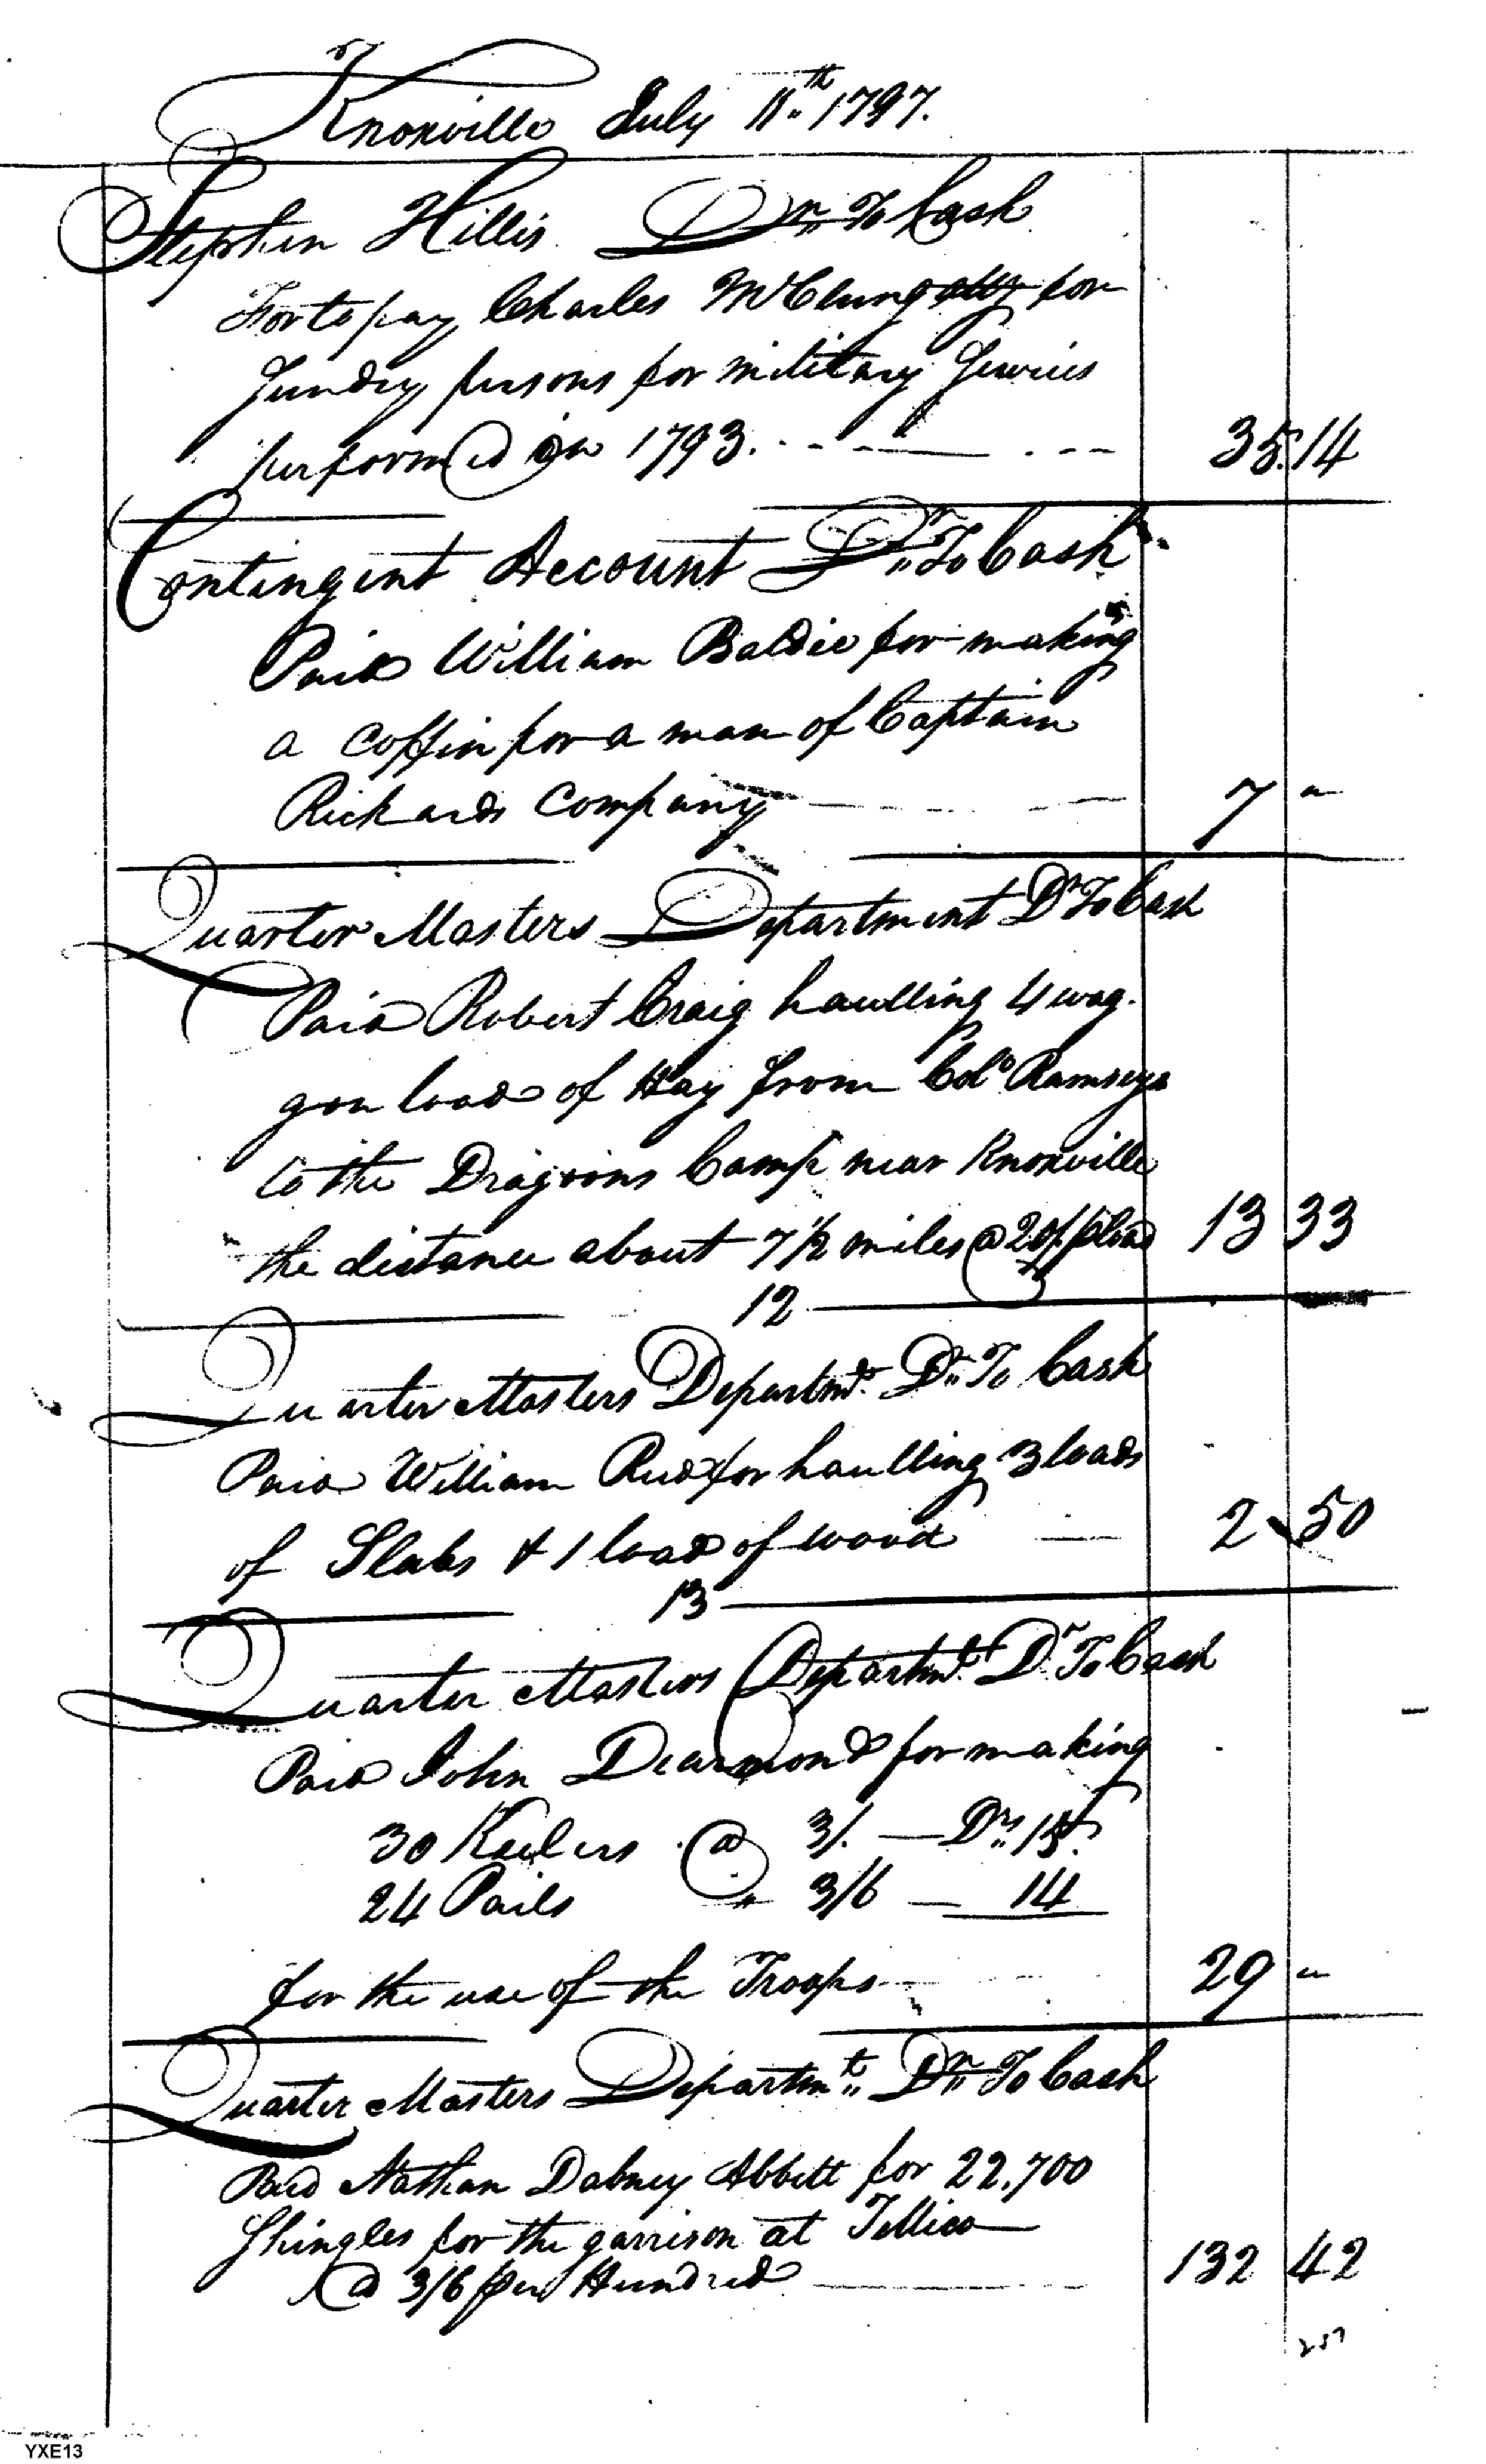 Knoxville July 11th 1797.
Stephen Hillis Dr. To Cash
For to pay Charles McClung atty for
Sundry persons for military Services
performed in 1793. 35.14
Contingent Account Dr. To Cash
Paid William Baldie for making
a coffin for a man of Captain
Rickards Company 7 "
Quarter Masters Department Dr To Cash
Paid Robert Craig haulling 4 wag-
gon loads of Hay from Colo Ramseys
to the Dragoons Camp near Knoxville
the distance about 7 1/2 miles @ 20/. p load 13 33
12
Quarter Masters Departmt. Dr. To Cash
Paid William Reed for haulling 3 loads
of Slabs & 1 load of wood 2 50
13
Quarter Masters Departmt. Dr To Cash
Paid John Dearmond for making
30 Keelers @ 3/. — Drs. 15.
24 Pails " 3/6 — 14
for the use of the Troops 29 "
Quarter Masters Departmt. Dr. To Cash
Paid Nathan Dabney Abbitt for 22,700
Shingles for the garrison at Tellico
@ 3/6 per Hundred 132 42
257
YXE13